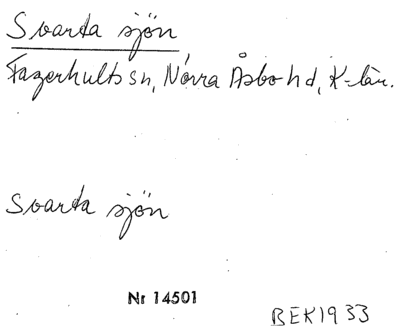 Svarta sjön
Fagerhults sn, Norra Åsbo hd, K-län.
Svarta sjön
Nr 14501
BEK1933